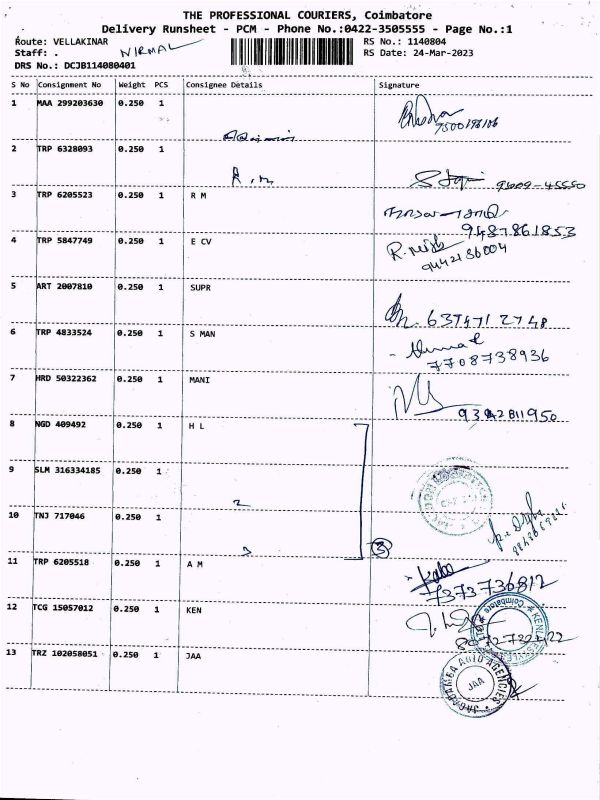 THE PROFESSIONAL COURIERS, Coimbatore
Delivery Runsheet - PCM - Phone No.:0422-3505555 - Page No.:1
Route: VELLAKINAR RS No.: 1140804
Staff: . NIRMAL RS Date: 24-Mar-2023
DRS No.: DCJB114080401
S No Consignment No Weight PCS Consignee Details Signature
1 MAA 299203630 0.250 1
2 TRP 6328093 0.250 1
R.M
3 TRP 6205523 0.250 1 R M
9487861853
4 TRP 5847749 0.250 1 E CV
9442136004
5 ART 2007810 0.250 1 SUPR
6374712748
6 TRP 4833524 0.250 1 S MAN
7708738936
7 HRD 50322362 0.250 1 MANI
9342811950
8 NGD 409492 0.250 1 H L
9 SLM 316334185 0.250 1
2
10 TNJ 717046 0.250 1
3
3
11 TRP 6205518 0.250 1 A M
7373736812
12 TCG 15057012 0.250 1 KEN
Coimbatore
13 TRZ 102058051 0.250 1 JAA
JAGADAMBA AUTO AGENCIES
JAA